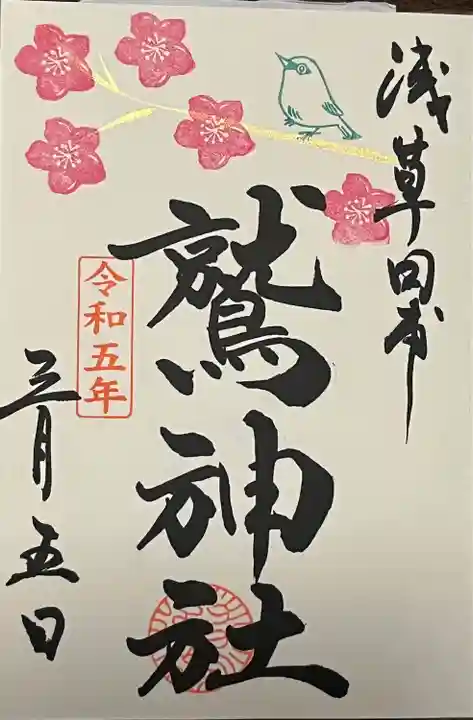 浅草田甫
鷲神社
令和五年
三月五日